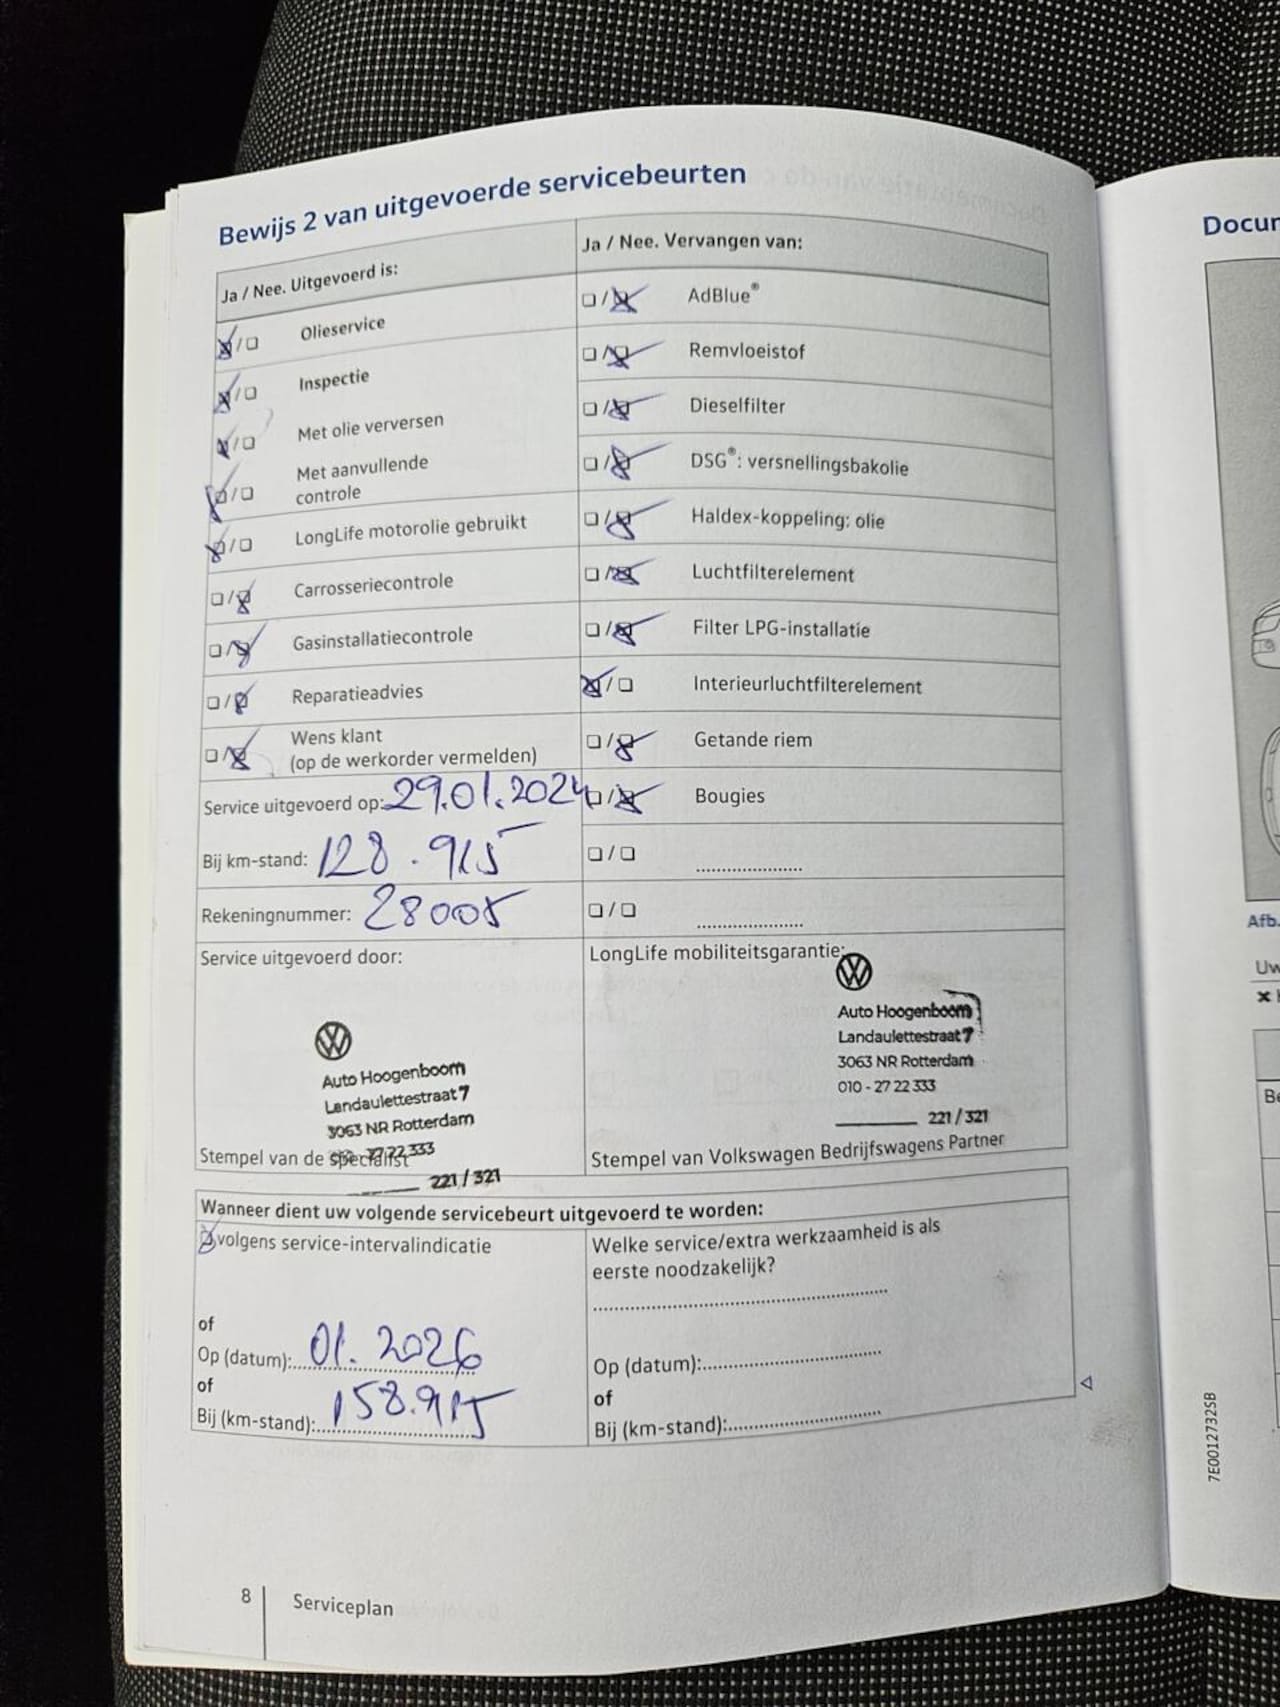 Bewijs 2 van uitgevoerde servicebeurten
Ja / Nee. Uitgevoerd is:
Olieservice
Inspectie
Met olie verversen
Met aanvullende
controle
LongLife motorolie gebruikt
Carrosseriecontrole
Gasinstallatiecontrole
Reparatieadvies
Wens klant
(op de werkorder vermelden)
Service uitgevoerd op: 29.01.2024
Bij km-stand: 128.915
Rekeningnummer: 28005
Ja / Nee. Vervangen van:
AdBlue®
Remvloeistof
Dieselfilter
DSG®: versnellingsbakolie
Haldex-koppeling: olie
Luchtfilterelement
Filter LPG-installatie
Interieurluchtfilterelement
Getande riem
Bougies
Service uitgevoerd door:
Auto Hoogenboom
Landaulettestraat 7
3063 NR Rotterdam
27 22 333
221 / 321
Stempel van de specialist
LongLife mobiliteitsgarantie:
Auto Hoogenboom
Landaulettestraat 7
3063 NR Rotterdam
010 - 27 22 333
221 / 321
Stempel van Volkswagen Bedrijfswagens Partner
Wanneer dient uw volgende servicebeurt uitgevoerd te worden:
volgens service-intervalindicatie
of
Op (datum): 01.2026
of
Bij (km-stand): 158.915
Welke service/extra werkzaamheid is als
eerste noodzakelijk?
Op (datum):
of
Bij (km-stand):
8
Serviceplan
Docur
Afb.
Uw
Be
7E0012732SB